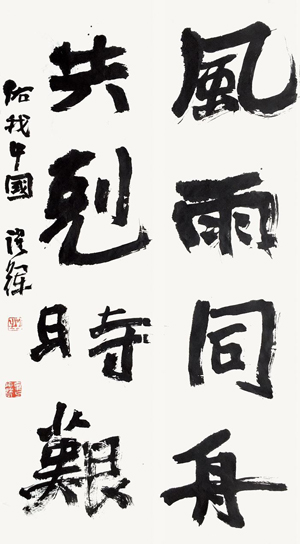 風雨同舟
共剋時艱
佑我中國